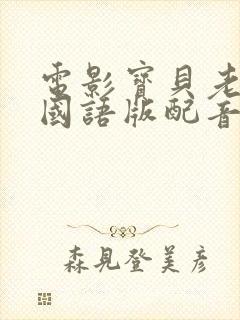 電影寶貝老
國語版配音
森見登美彥